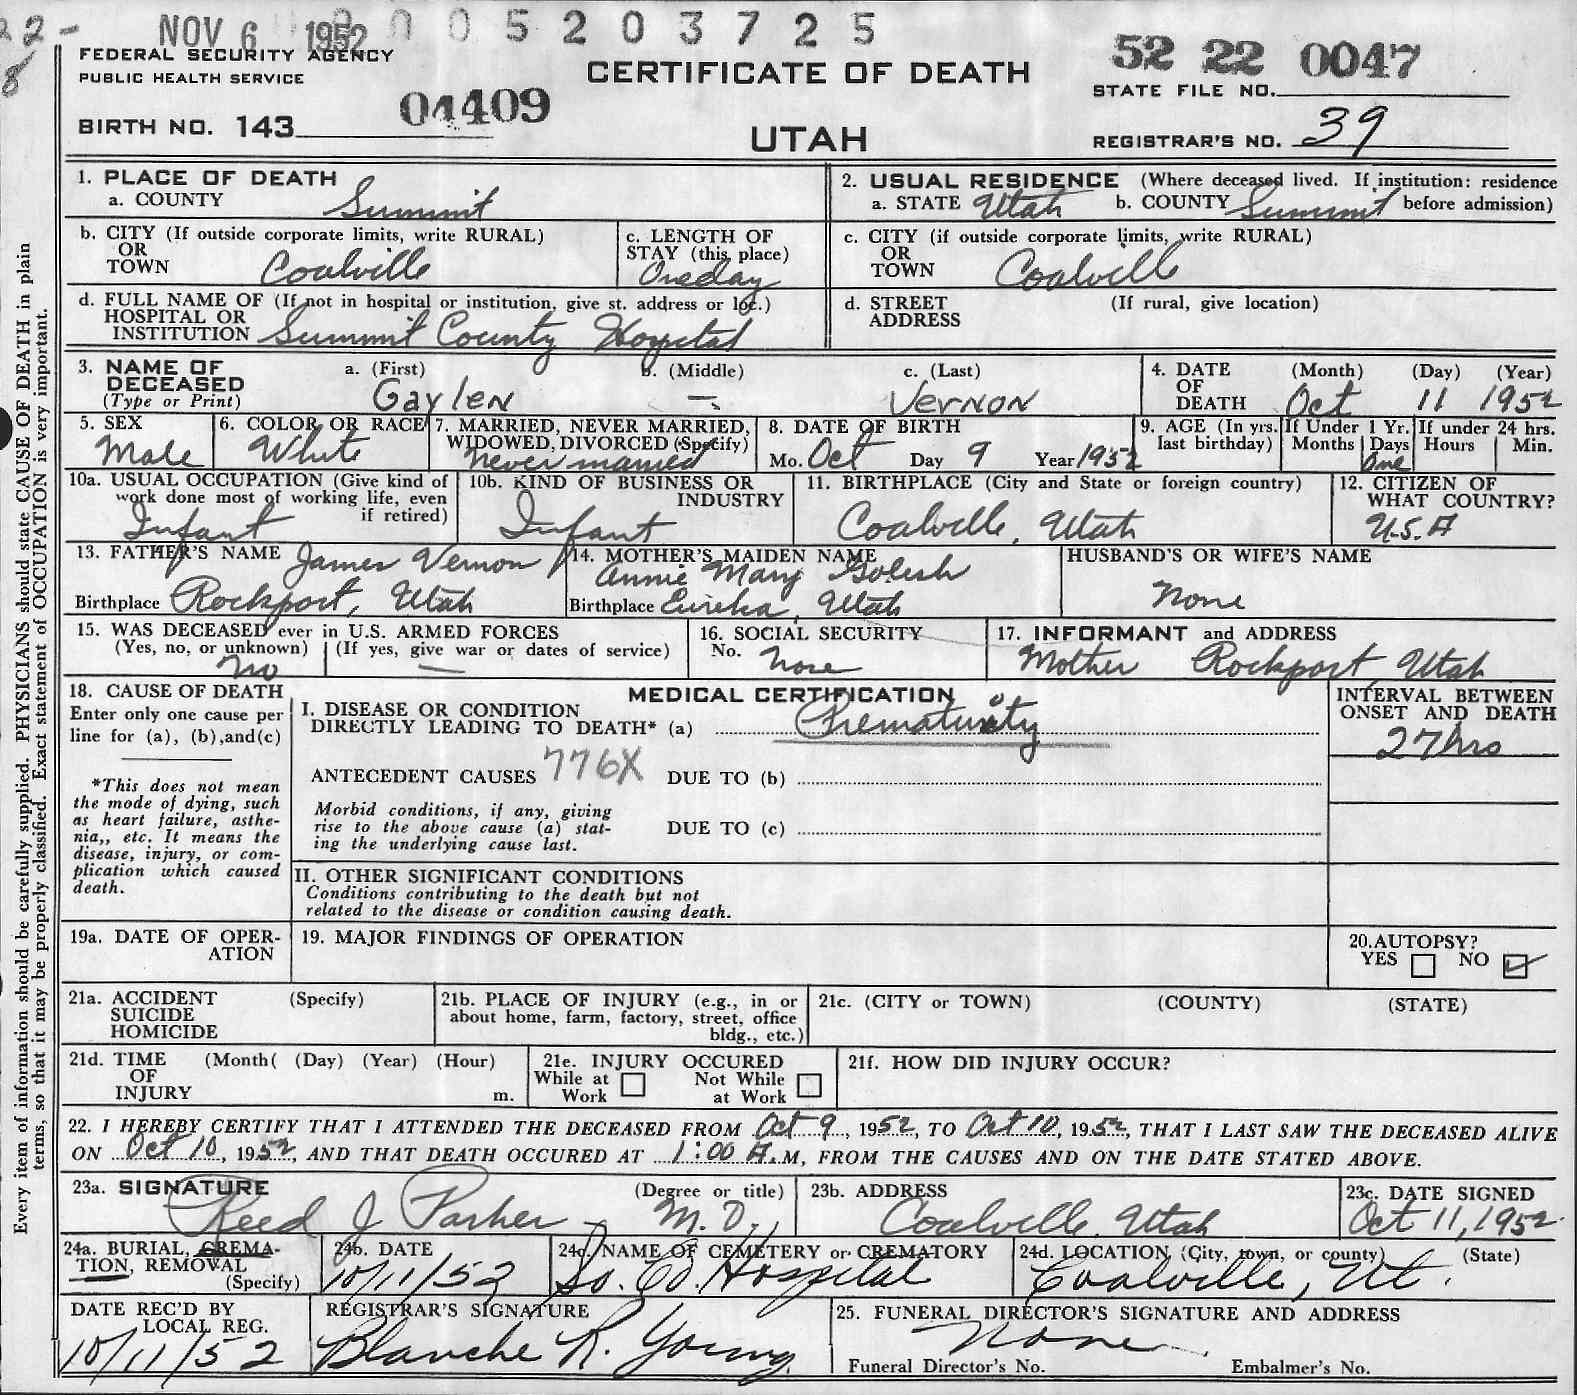 22-
8
NOV 6 1952
0005203725
FEDERAL SECURITY AGENCY
PUBLIC HEALTH SERVICE
CERTIFICATE OF DEATH
52 22 0047
STATE FILE NO.
BIRTH NO. 143 04409
UTAH
REGISTRAR'S NO. 39
Every item of information should be carefully supplied. PHYSICIANS should state CAUSE OF DEATH in plain
terms, so that it may be properly classified. Exact statement of OCCUPATION is very important.
1. PLACE OF DEATH
a. COUNTY Summit
2. USUAL RESIDENCE (Where deceased lived. If institution: residence
a. STATE Utah b. COUNTY Summit before admission)
b. CITY (If outside corporate limits, write RURAL)
OR
TOWN Coalville
c. LENGTH OF
STAY (this place)
One day
c. CITY (if outside corporate limits, write RURAL)
OR
TOWN Coalville
d. FULL NAME OF (If not in hospital or institution, give st. address or loc.)
HOSPITAL OR
INSTITUTION Summit County Hospital
d. STREET (If rural, give location)
ADDRESS
3. NAME OF
DECEASED
(Type or Print)
a. (First) b. (Middle) c. (Last)
Gaylen — Vernon
4. DATE
OF
DEATH
(Month) (Day) (Year)
Oct 11 1952
5. SEX
Male
6. COLOR OR RACE
White
7. MARRIED, NEVER MARRIED,
WIDOWED, DIVORCED (Specify)
Never married
8. DATE OF BIRTH
Mo. Oct Day 9 Year 1952
9. AGE (In yrs.
last birthday)
If Under 1 Yr.
Months Days
One
If under 24 hrs.
Hours Min.
10a. USUAL OCCUPATION (Give kind of
work done most of working life, even
if retired)
Infant
10b. KIND OF BUSINESS OR
INDUSTRY
Infant
11. BIRTHPLACE (City and State or foreign country)
Coalville, Utah
12. CITIZEN OF
WHAT COUNTRY?
U.S.A
13. FATHER'S NAME James Vernon
Birthplace Rockport, Utah
14. MOTHER'S MAIDEN NAME
Annie Mary
Birthplace Eureka, Utah
HUSBAND'S OR WIFE'S NAME
None
15. WAS DECEASED ever in U.S. ARMED FORCES
(Yes, no, or unknown) (If yes, give war or dates of service)
No —
16. SOCIAL SECURITY
No. None
17. INFORMANT and ADDRESS
Mother Rockport, Utah
18. CAUSE OF DEATH
Enter only one cause per
line for (a), (b),and(c)
*This does not mean
the mode of dying, such
as heart failure, asthe-
nia,, etc. It means the
disease, injury, or com-
plication which caused
death.
MEDICAL CERTIFICATION
I. DISEASE OR CONDITION
DIRECTLY LEADING TO DEATH* (a) Prematurity
INTERVAL BETWEEN
ONSET AND DEATH
27hrs
ANTECEDENT CAUSES 776X DUE TO (b)
Morbid conditions, if any, giving
rise to the above cause (a) stat-
ing the underlying cause last.
DUE TO (c)
II. OTHER SIGNIFICANT CONDITIONS
Conditions contributing to the death but not
related to the disease or condition causing death.
19a. DATE OF OPER-
ATION
19. MAJOR FINDINGS OF OPERATION
20. AUTOPSY?
YES NO ✓
21a. ACCIDENT (Specify)
SUICIDE
HOMICIDE
21b. PLACE OF INJURY (e.g., in or
about home, farm, factory, street, office
bldg., etc.)
21c. (CITY or TOWN) (COUNTY) (STATE)
21d. TIME (Month( (Day) (Year) (Hour)
OF
INJURY m.
21e. INJURY OCCURED
While at Not While
Work at Work
21f. HOW DID INJURY OCCUR?
22. I HEREBY CERTIFY THAT I ATTENDED THE DECEASED FROM Oct 9, 1952, TO Oct 10, 1952, THAT I LAST SAW THE DECEASED ALIVE
ON Oct 10, 1952, AND THAT DEATH OCCURED AT 1:00 A.M, FROM THE CAUSES AND ON THE DATE STATED ABOVE.
23a. SIGNATURE (Degree or title)
Reed J Parker M.D.
23b. ADDRESS
Coalville, Utah
23c. DATE SIGNED
Oct 11, 1952.
24a. BURIAL, CREMA-
TION, REMOVAL
(Specify)
24b. DATE
10/11/52
24c. NAME OF CEMETERY or CREMATORY
So. Co. Hospital
24d. LOCATION (City, town, or county) (State)
Coalville, Ut.
DATE REC'D BY
LOCAL REG.
10/11/52
REGISTRAR'S SIGNATURE
Blanche R. Young
25. FUNERAL DIRECTOR'S SIGNATURE AND ADDRESS
None
Funeral Director's No. Embalmer's No.